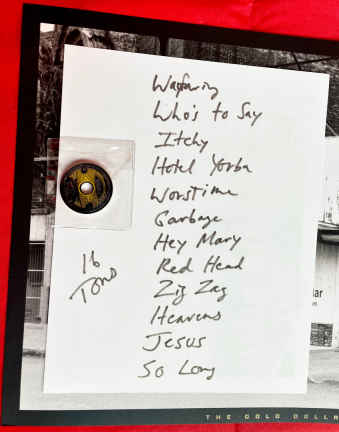 Wayfaring
Who's to Say
Itchy
Hotel Yorba
Worstime
Garbage
Hey Mary
Red Head
Zig Zag
Heavens
Jesus
So Long
16
Tons
lar
THE GOLD DOLLA